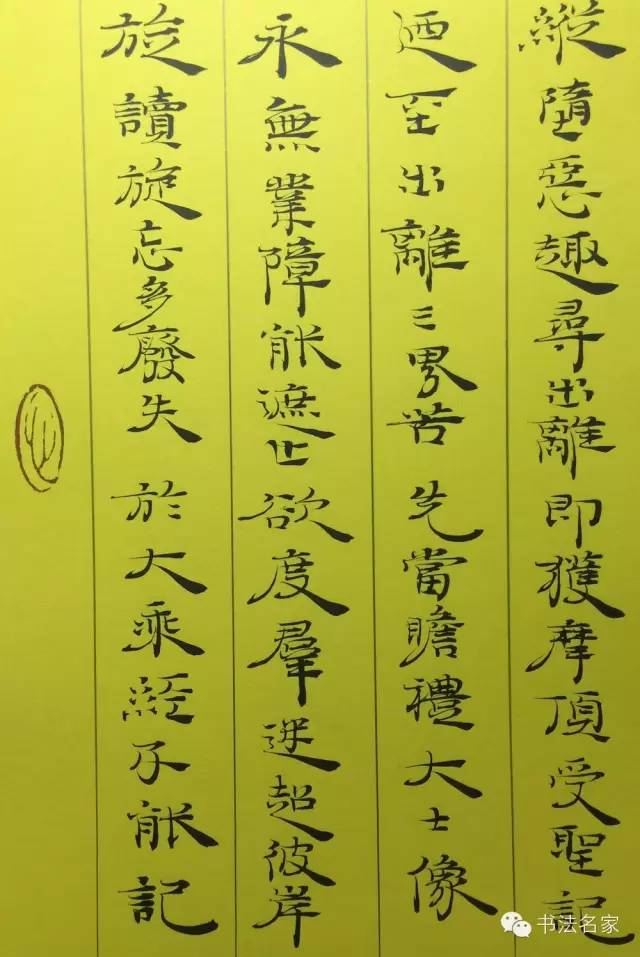 縱墮惡趣尋出離即獲摩頂受聖記
迺至出離三界苦先當瞻禮大士像
永無業障能遮止欲度羣迷超彼岸
旋讀旋忘多廢失於大乘經不能記
书法名家